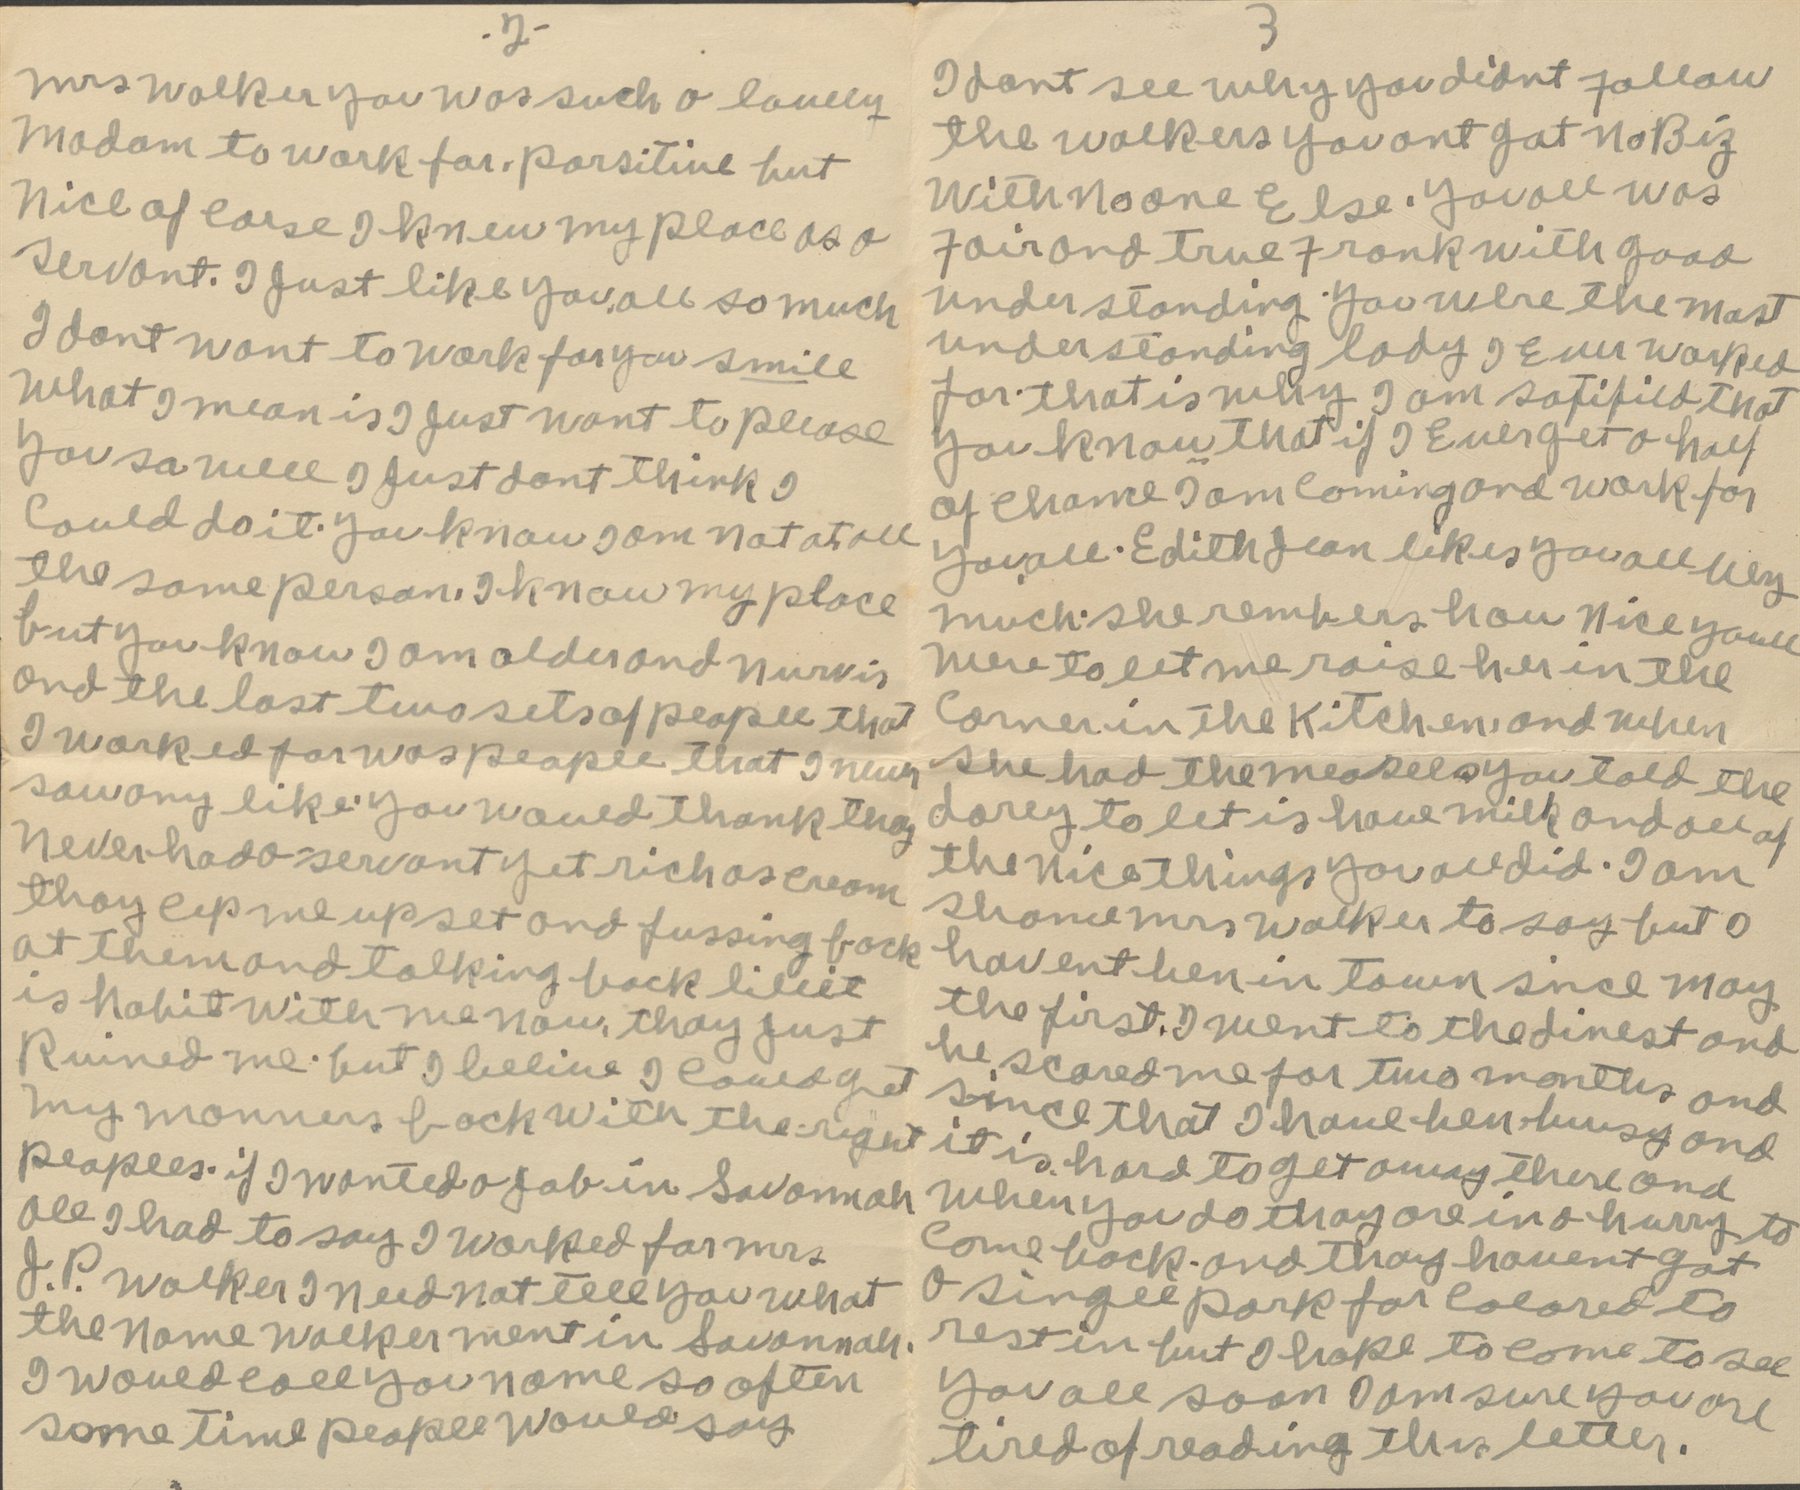 -2-
Mrs Walker you was such a lovely
Madam to work for. parsitive but
Nice of corse I knew my place as a
servant. I Just like you,all so much
I dont want to work for you smile
What I mean is I Just want to please
you so well I Just dont think I
could do it. you know I am not at, all
the same person. I know my place
but you know I am older and nurvis
and the last two sets of people that
I worked for was people that I never
saw any like. you would thank thay
Never had a servant yet rich as cream
thay cep me upset and fussing back
at them and talking back
is habit with me now, thay Just
Ruined me. but I belive I could get
my manners back with the right
peoples. if I wanted a Job in Savannah
all I had to say I worked for Mrs
J.P. Walker I need not tell you what
the Name Walker ment in Savannah.
I would call you name so often
some time people would say
3
I dont see why you didnt follow
the walkers you ont got No Biz
With No one Else. you all was
Fair and true Frank with good
understanding. you were the most
understanding lady I Ever worked
for. that is why I am satified that
you know that if I Ever get a half
of chance I am coming and work for
you,all. Edith Jean likes you all vey
much. she rembers how Nice youall
were to let me raise her in the
corner in the Kitchen, and when
she had the measels you told the
darey to let is have milk and all of
the Nice things you all did. I am
shame Mrs Walker to say but I
havent ben in town since May
the first. I went to the dinest and
he scared me for two months and
since that I have ben busy and
it is hard to get away there and
When you do thay are in a hurry to
come back. and thay havent got
a singel park for colored to
rest in but I hope to come to see
you all soon I am sure you are
tired of reading this letter.